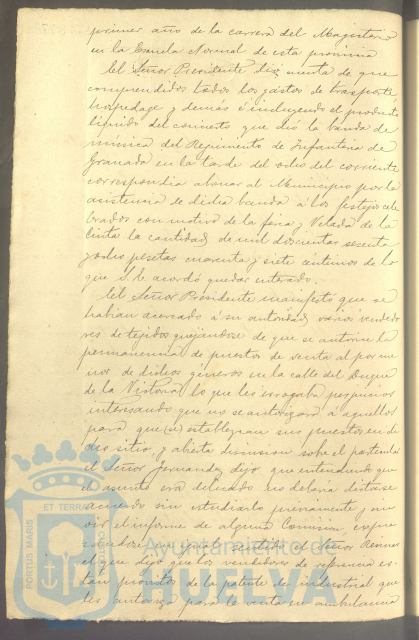 primer año de la carrera del Magisterio
en la Escuela Normal de esta provincia
El Señor Presidente dió cuenta de que
comprendidos todos los gastos de trasporte
hospedage y demás é incluyendo el producto
liquido del concierto que dió la banda de
música del Regimiento de Infantería de
Granada en la tarde del ocho del corriente
correspondia abonar al Municipio por la
asistencia de dicha banda á los festejos cele
brados con motivo de la feria y Velada de la
Cinta la cantidad de mil doscientas sesenta
y ocho pesetas cuarenta y siete céntimos de lo
que S. E. acordó quedar enterado.
El Señor Presidente manifestó que se
habian acercado á su autoridad varios vendedo
res de tejidos quejándose de que se autorice la
permanencia de puestos de venta al por me
nor de dichos géneros en la calle del Duque
de la Victoria lo que les irrogaba perjuicios
interesando que no se autorizara á aquellos
para que se establezcan sus puestos en di
cho sitio, y abierta discusion sobre el particular
el Señor Fernandez dijo que entendiendo que
el asunto era delicado no debia dictarse
acuerdo sin estudiarlo previamente y
oir el informe de alguna Comision,
en igual sentido el Señor
el que dijo que los vendedores de referencia es
tan provistos de la patente de industrial que
les autoriza para la venta en ambulancia
PORTUS MARIS ET TERRAE CUSTODIA
Ayuntamiento de
HUELVA